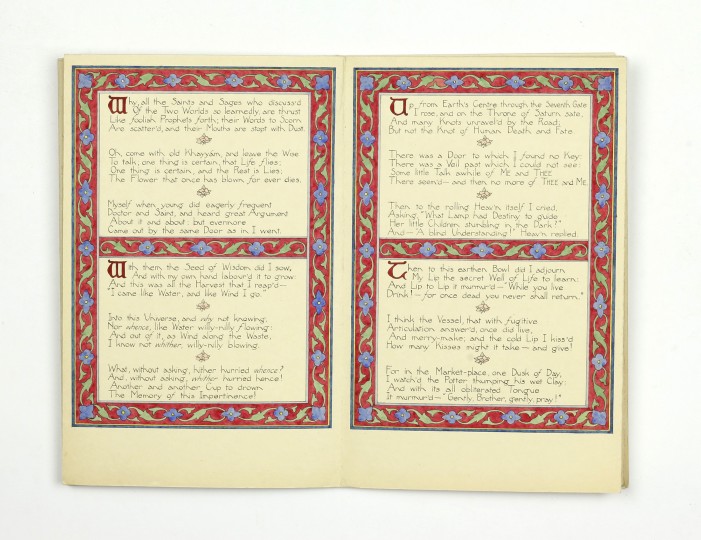 Why, all the Saints and Sages who discuss'd
Of the Two Worlds so learnedly, are thrust
Like foolish Prophets forth; their Words to Scorn
Are scatter'd, and their Mouths are stopt with Dust.
Oh, come with old Khayyám, and leave the Wise
To talk; one thing is certain, that Life flies;
One thing is certain, and the Rest is Lies;
The Flower that once has blown for ever dies.
Myself when young did eagerly frequent
Doctor and Saint, and heard great Argument
About it and about: but evermore
Came out by the same Door as in I went.
With them the Seed of Wisdom did I sow,
And with my own hand labour'd it to grow:
And this was all the Harvest that I reap'd—
"I came like Water, and like Wind I go."
Into this Universe, and why not knowing,
Nor whence, like Water willy-nilly flowing:
And out of it, as Wind along the Waste,
I know not whither, willy-nilly blowing.
What, without asking, hither hurried whence?
And, without asking, whither hurried hence!
Another and another Cup to drown
The Memory of this Impertinence!
Up from Earth's Centre through the Seventh Gate
I rose, and on the Throne of Saturn sate,
And many Knots unravel'd by the Road;
But not the Knot of Human Death and Fate.
There was a Door to which I found no Key:
There was a Veil past which I could not see:
Some little Talk awhile of ME and THEE
There seem'd—and then no more of THEE and ME.
Then to the rolling Heav'n itself I cried,
Asking, "What Lamp had Destiny to guide
Her little Children stumbling in the Dark?"
And—"A blind Understanding!" Heav'n replied.
Then to this earthen Bowl did I adjourn
My Lip the secret Well of Life to learn:
And Lip to Lip it murmur'd—"While you live
Drink!—for once dead you never shall return."
I think the Vessel, that with fugitive
Articulation answer'd, once did live,
And merry-make; and the cold Lip I kiss'd
How many Kisses might it take—and give!
For in the Market-place, one Dusk of Day,
I watch'd the Potter thumping his wet Clay:
And with its all obliterated Tongue
It murmur'd—"Gently, Brother, gently, pray!"